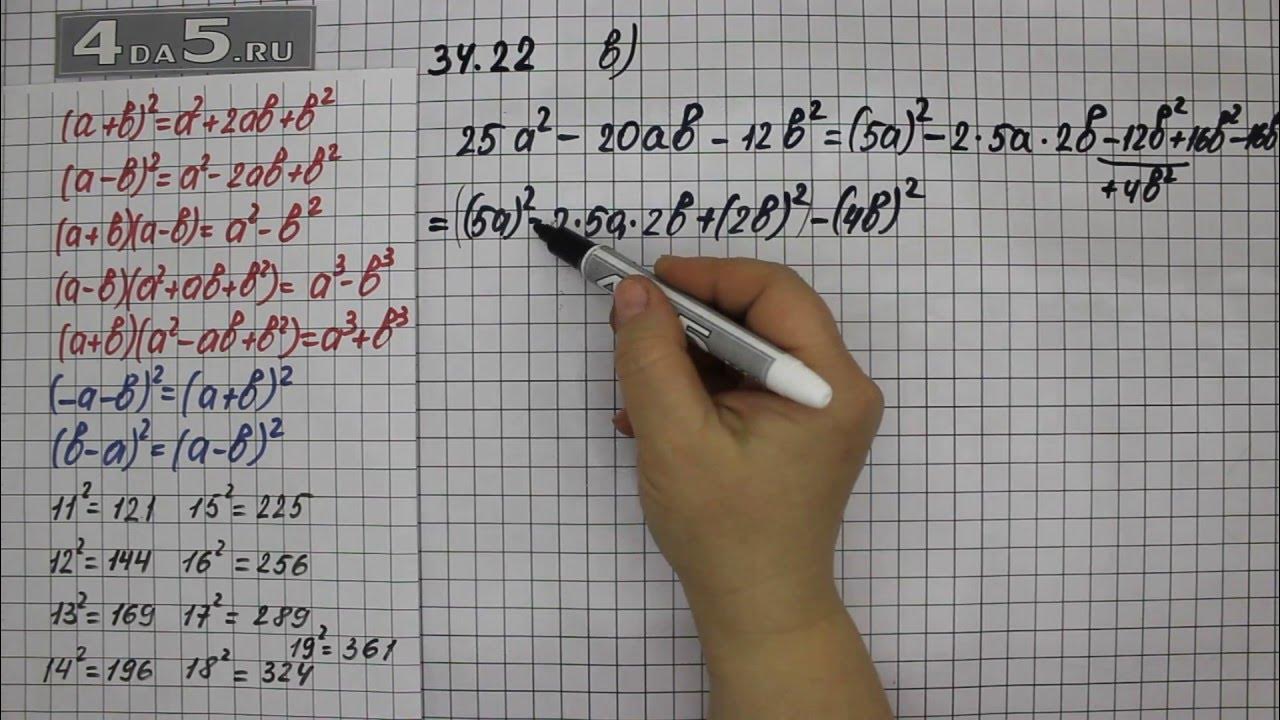 4DA5.RU
(a+b)²=a²+2ab+b²
(a-b)²=a²-2ab+b²
(a+b)(a-b)=a²-b²
(a-b)(a²+ab+b²)=a³-b³
(a+b)(a²-ab+b²)=a³+b³
(-a-b)²=(a+b)²
(b-a)²=(a-b)²
11²=121 15²=225
12²=144 16²=256
13²=169 17²=289
19²=361
14²=196 18²=324
34.22 в)
25a²-20ab-12b²=(5a)²-2·5a·2b-12b²+16b²-16b
+4b²
=((5a)²-2·5a·2b+(2b)²)-(4b)²